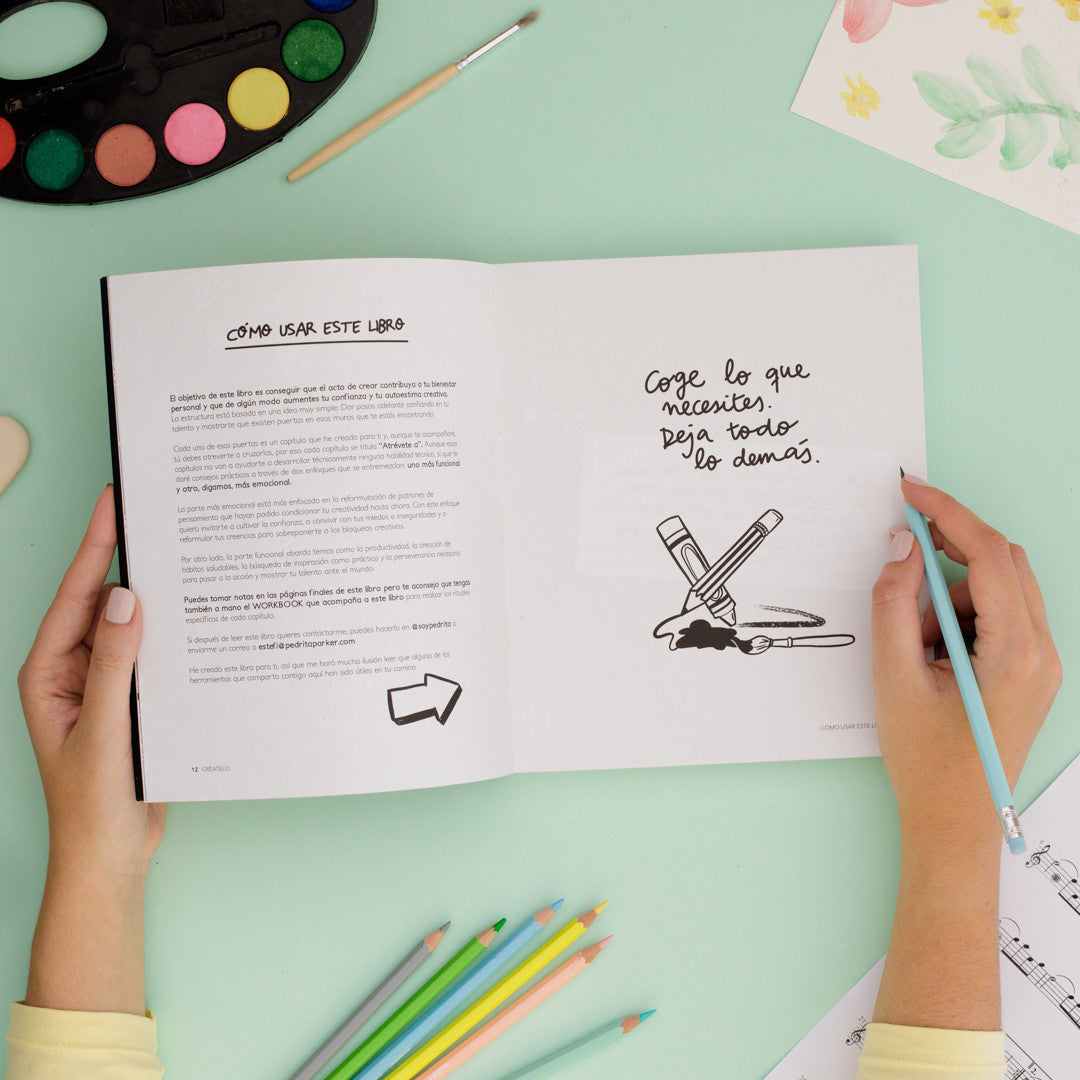 CÓMO USAR ESTE LIBRO
El objetivo de este libro es conseguir que el acto de crear contribuya a tu bienestar
personal y que de algún modo aumentes tu confianza y tu autoestima creativa.
La estructura está basada en una idea muy simple: Dar pasos adelante confiando en tu
talento y mostrarte que existen puertas en esos muros que te estás encontrando.
Cada una de esas puertas es un capítulo que he creado para ti y, aunque te acompañaré,
tú debes atreverte a cruzarlas, por eso cada capítulo se titula "Atrévete a". Aunque esos
capítulos no van a ayudarte a desarrollar técnicamente ninguna habilidad técnica, sí que te
daré consejos prácticos a través de dos enfoques que se entremezclan: uno más funcional
y otro, digamos, más emocional.
La parte más emocional está más enfocada en la reformulación de patrones de
pensamiento que hayan podido condicionar tu creatividad hasta ahora. Con este enfoque
quiero invitarte a cultivar la confianza, a convivir con tus miedos e inseguridades y a
reformular tus creencias para sobreponerte a los bloqueos creativos.
Por otro lado, la parte funcional aborda temas como la productividad, la creación de
hábitos saludables, la búsqueda de inspiración como práctica y la perseverancia necesaria
para pasar a la acción y mostrar tu talento ante el mundo.
Puedes tomar notas en las páginas finales de este libro pero te aconsejo que tengas
también a mano el WORKBOOK que acompaña a este libro para realizar los rituales
específicos de cada capítulo.
Si después de leer este libro quieres contactarme, puedes hacerlo en @soypedrita o
enviarme un correo a estefi@pedritaparker.com
He creado este libro para ti, así que me hará mucha ilusión leer que alguna de las
herramientas que comparto contigo aquí han sido útiles en tu camino.
12 CRÉATELO
Coge lo que
necesites.
Deja todo
lo demás.
CÓMO USAR ESTE LI